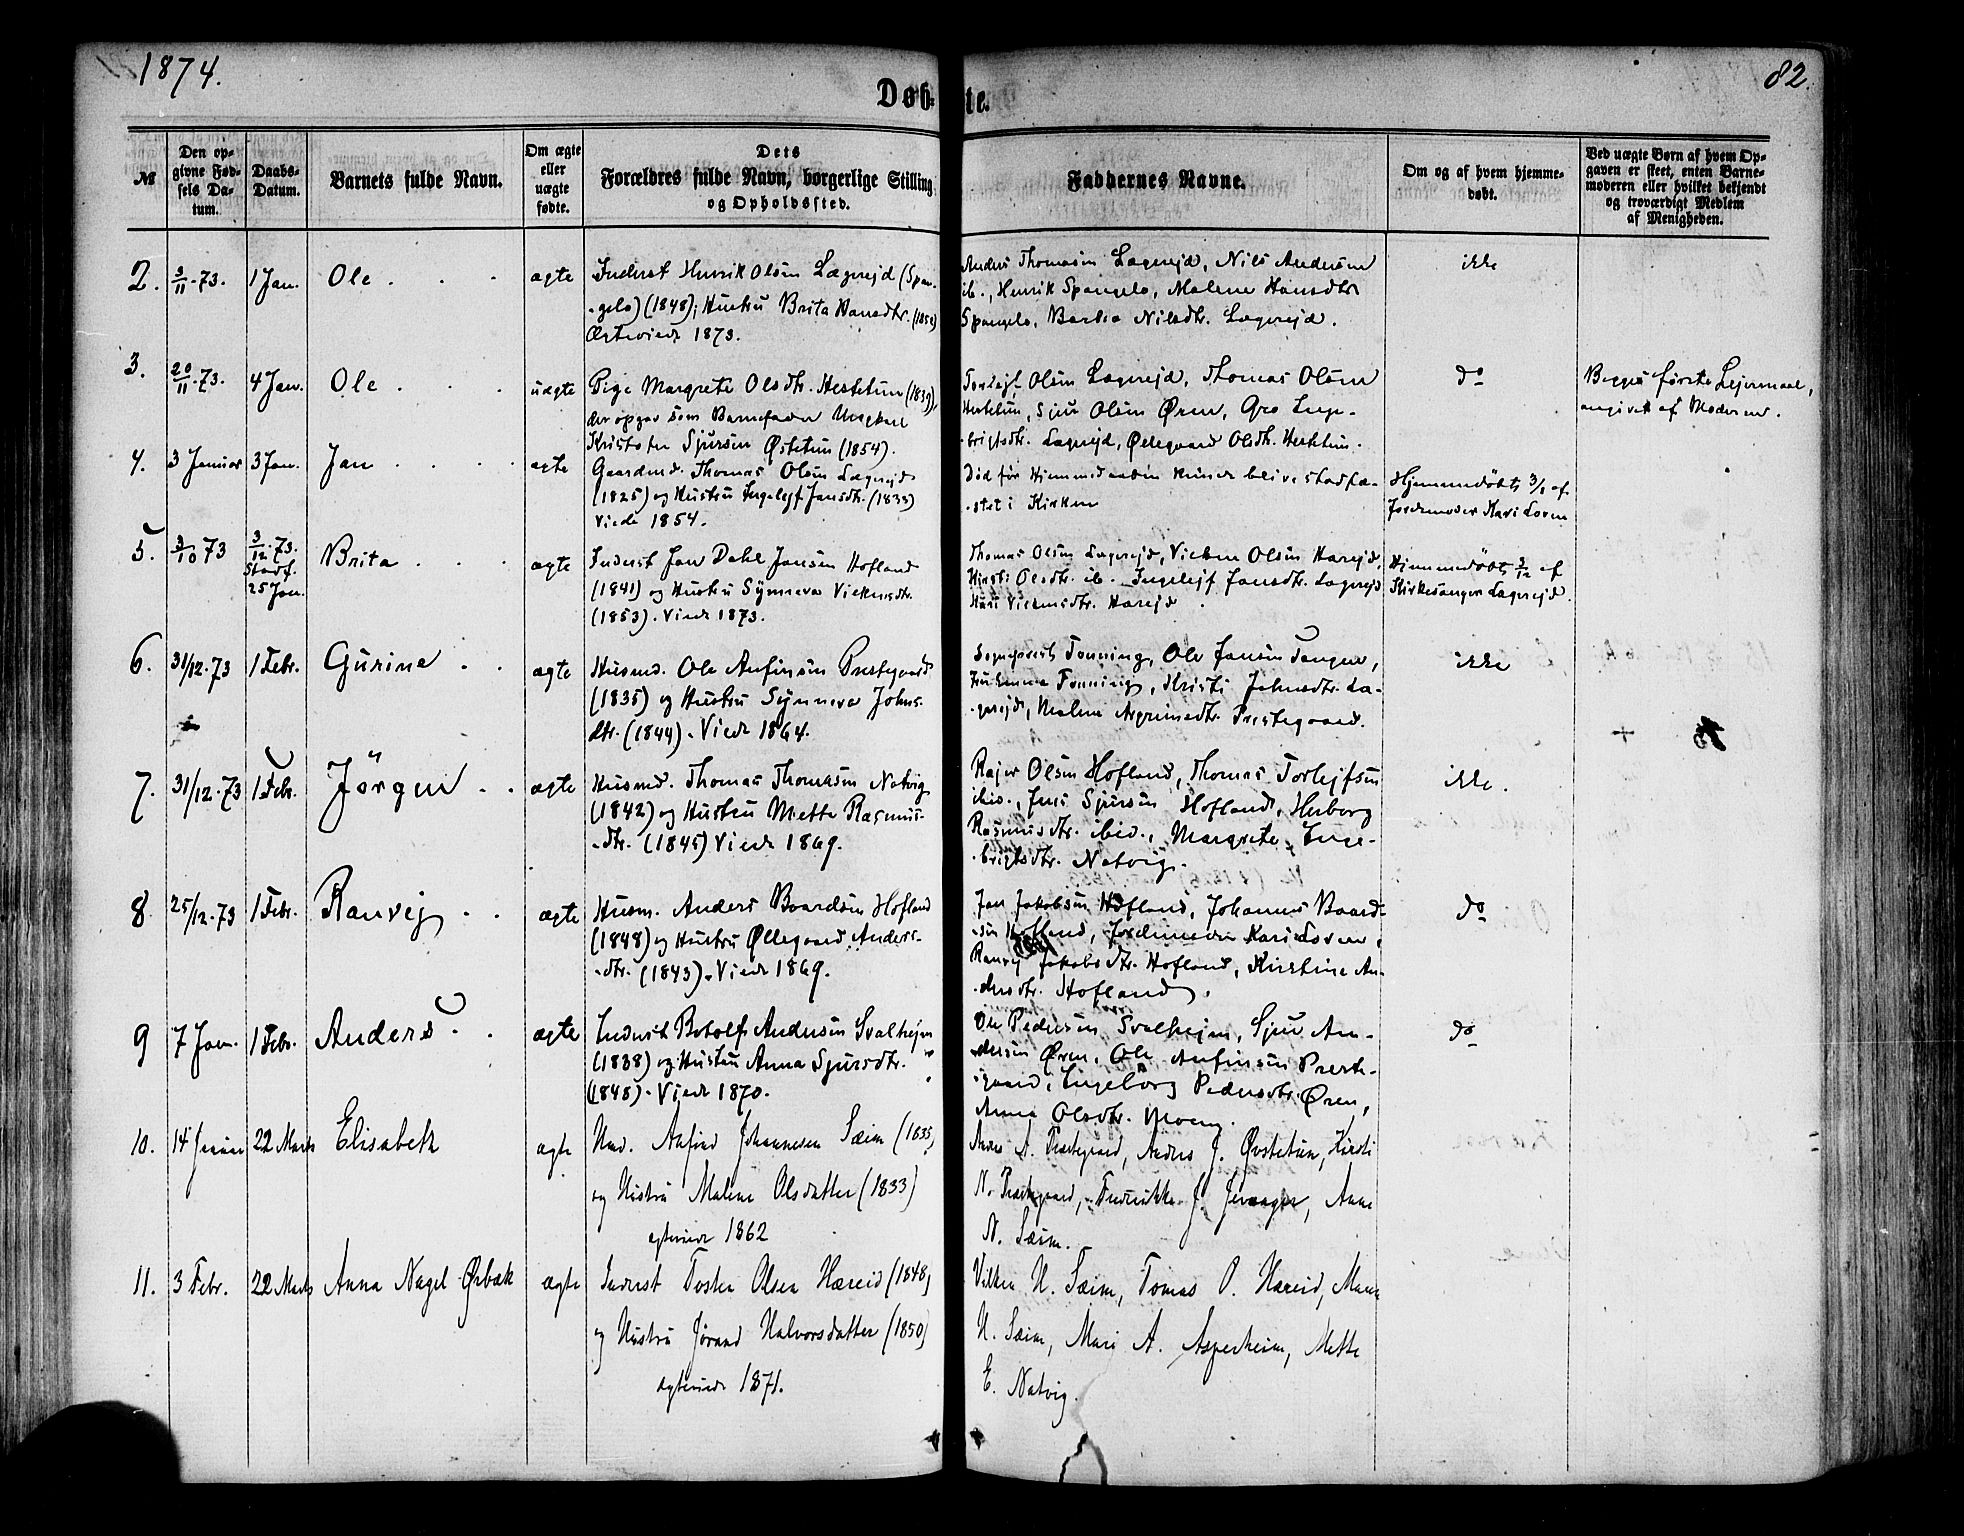 1874.
82.
Døbte.
№
Den opgivne Fødsels Datum.
Daabs-Datum.
Barnets fulde Navn.
Om ægte eller uægte fødte.
Dets Forældres fulde Navn, borgerlige Stilling og Opholdssted.
Faddernes Navne.
Om og af hvem hjemmedøbt.
Ved uægte Børn af hvem Opgaven er skeet, enten Barnemoderen eller hvilket bekjendt og troværdigt Medlem af Menigheden.
2. 3/11.73. 1 Jan. Ole ægte
Inderst Henrik Olsen Lægrejd (Span-
-gelo) (1848); Hustru Brita Hansdtr.
Ægteviede 1873.
Anders Thomasen Lægrejd, Nils Andersen
ib., Henrik Spangelo, Malene Hansdtr
Spangelo, Nilsdtr. Lægrejd.
ikke
3. 20/11.73. 4 Jan. Ole uægte
Pige Margrete Olsdtr. Hestetun (1839),
der opgav som Barnefader Ungkarl
Kristofer Sjursen Østetun (1854).
Torlejf Olsen Lægrejd, Thomas Olsen
Hestetun, Sjur Olsen Øren, Gro Inge-
-brigtsdtr. Lægrejd, Øllegaard Olsdtr. Hestetun.
do
Begges første Lejermaal,
angivet af Moderen.
4. 3 Januar 3 Jan. Jan ægte
Gaardmd. Thomas Olsen Lægrejd
(1825) og Hustru Ingelejf Jansdtr. (1833)
Viede 1854.
Død før Hjemmedaaben kunde blive stadfæ-
-stet i Kirken
Hjemmedøbt 3/1 af
Jordemoder Kari Loven
5. 3/10 73 3/12.73. Stadf. 25 Jan. Brita ægte
Inderst Jan Dahl Jansen Hofland
(1841) og Hustru Synneva Vickensdtr.
(1853). Viede 1873.
Thomas Olsen Lægrejd, Vicken Olsen Harejd,
Olsdtr. ib. Ingelejf Jansdtr. Lægrejd
Vickensdtr. Harejd.
Hjemmedöbt 3/12 af
Kirkesanger Lægrejd.
6. 31/12.73 1 Febr. Gurine ægte
Husmd. Ole Anfinsen Prestegaard
(1835) og Hustru Synneva Johns-
dtr. (1844). Viede 1864.
Sogneprest Tonning, Ole Jansen Tangen,
Tonning, Kristi Johnsdtr. Læ-
-grejd, Malene Prestegaard.
ikke
7. 31/12.73 1 Febr. Jörgen ægte
Husmd. Thomas Thomasen Natvig
(1842) og Hustru Mette Rasmus-
-dtr. (1845) Viede 1869.
Rajer Olsen Hofland, Thomas Torlejfsen
ibid., Jens Sjursen Hofland, Herborg
Rasmusdtr. ibid., Margrete Inge-
-brigtsdtr. Natvig.
ikke.
8. 25/12.73 1 Febr. Ranvej ægte
Husm. Anders Baardsen Hofland
(1848) og Hustru Øllegaard Anders-
-dtr. (1843). Viede 1869.
Jan Jakobsen Hofland, Johannes Baard-
-sen Hofland, Jordemoder Kari Loven,
Ranvej Jakobsdtr. Hofland, Kirstine An-
-dersdtr. Hofland.
do
9 7 Jan. 1 Febr. Anders ægte
Inderst Botolf Andersen Svalhejm
(1838) og Hustru Anna Sjursdtr.
(1848). Viede 1870.
Ole Pedersen Svalhejm, Sjur An-
-dersen Øren, Ole Anfinsen Preste-
-gaard, Ingeborg Pedersdtr. Øren,
Anna Olsdtr. Moen.
do
10. 14 Januar 22 Marts Elisabeth ægte
Anfind Johannesen Sæim (1835)
og Hustru Malene Olsdatter (1833)
ægteviede 1862
Anders A. Prestegaard, Anders J. Øvstetun, Kirsti
N. Prestegaard, Fredrikke J. Anne
N. Sæim.
11. 3 Febr. 22 Marts Anna Nagel Ørbæk ægte
Inderst Tosten Olsen Hæreid (1848)
og Hustru Jørand Halvorsdatter (1850)
ægteviede 1871.
Vilken H. Sæim, Tomas O. Hæreid,
H. Sæim, Mari A. Asperheim, Mette
E. Natvig.